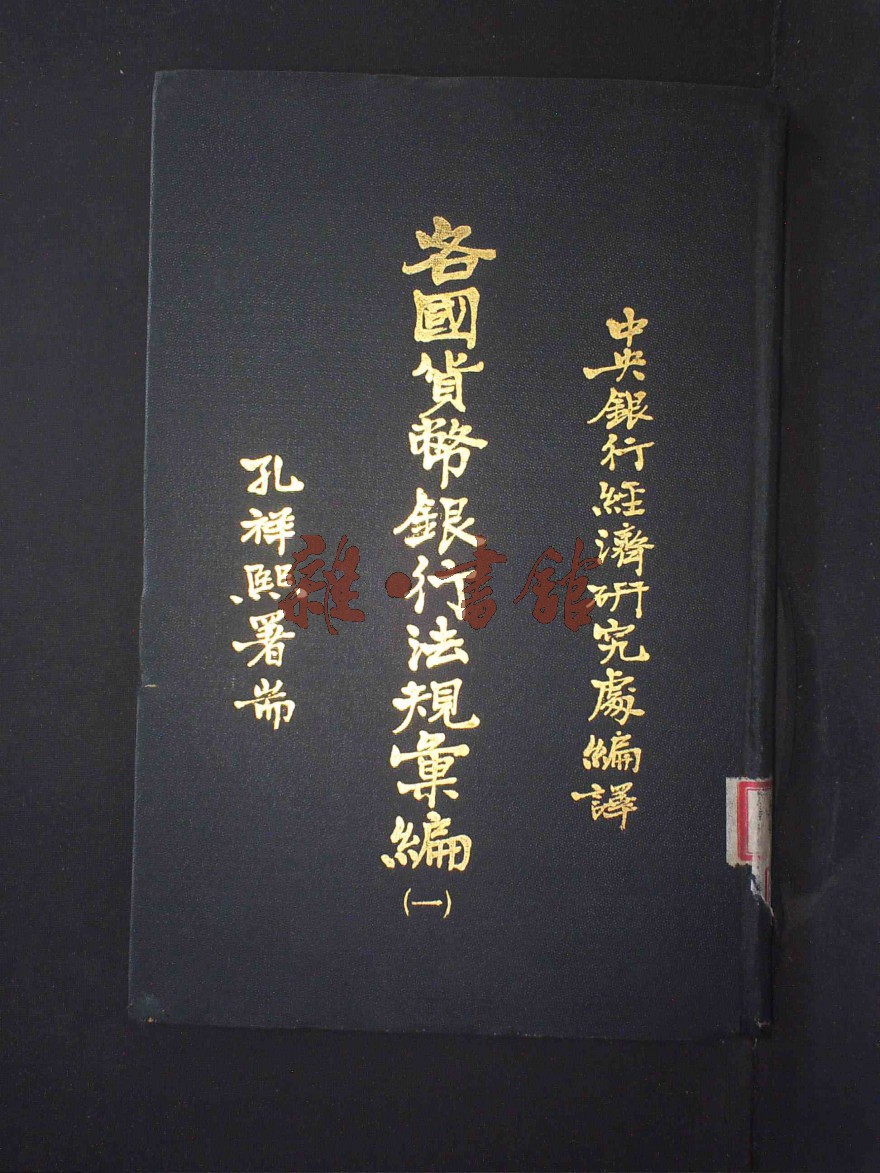 中央銀行經濟研究處編譯
各國貨幣銀行法規彙編
(一)
孔祥熙署耑
雜·書館